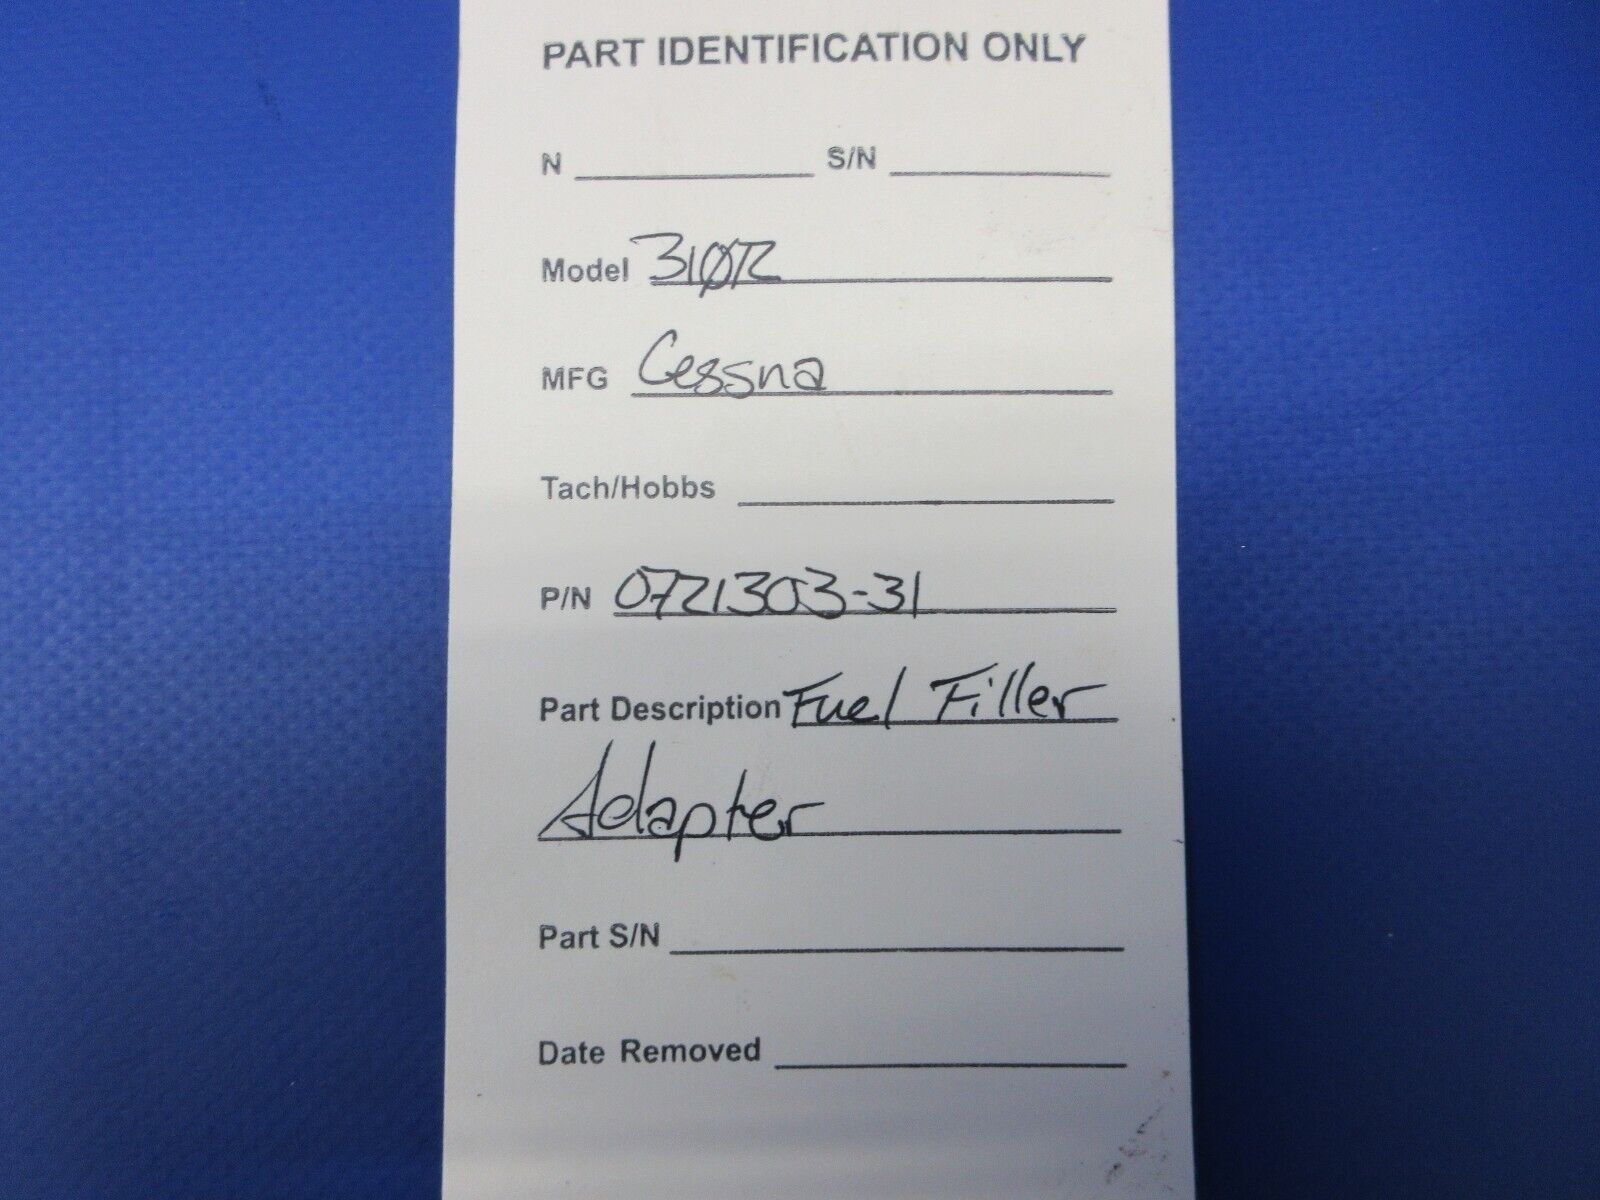 PART IDENTIFICATION ONLY
N S/N
Model 310R
MFG Cessna
Tach/Hobbs
P/N 0721303-31
Part Description Fuel Filler
Adapter
Part S/N
Date Removed